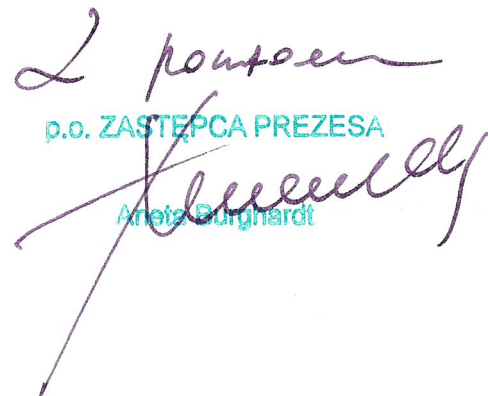 Z poważaniem
p.o. ZASTĘPCA PREZESA
Aneta Burghardt